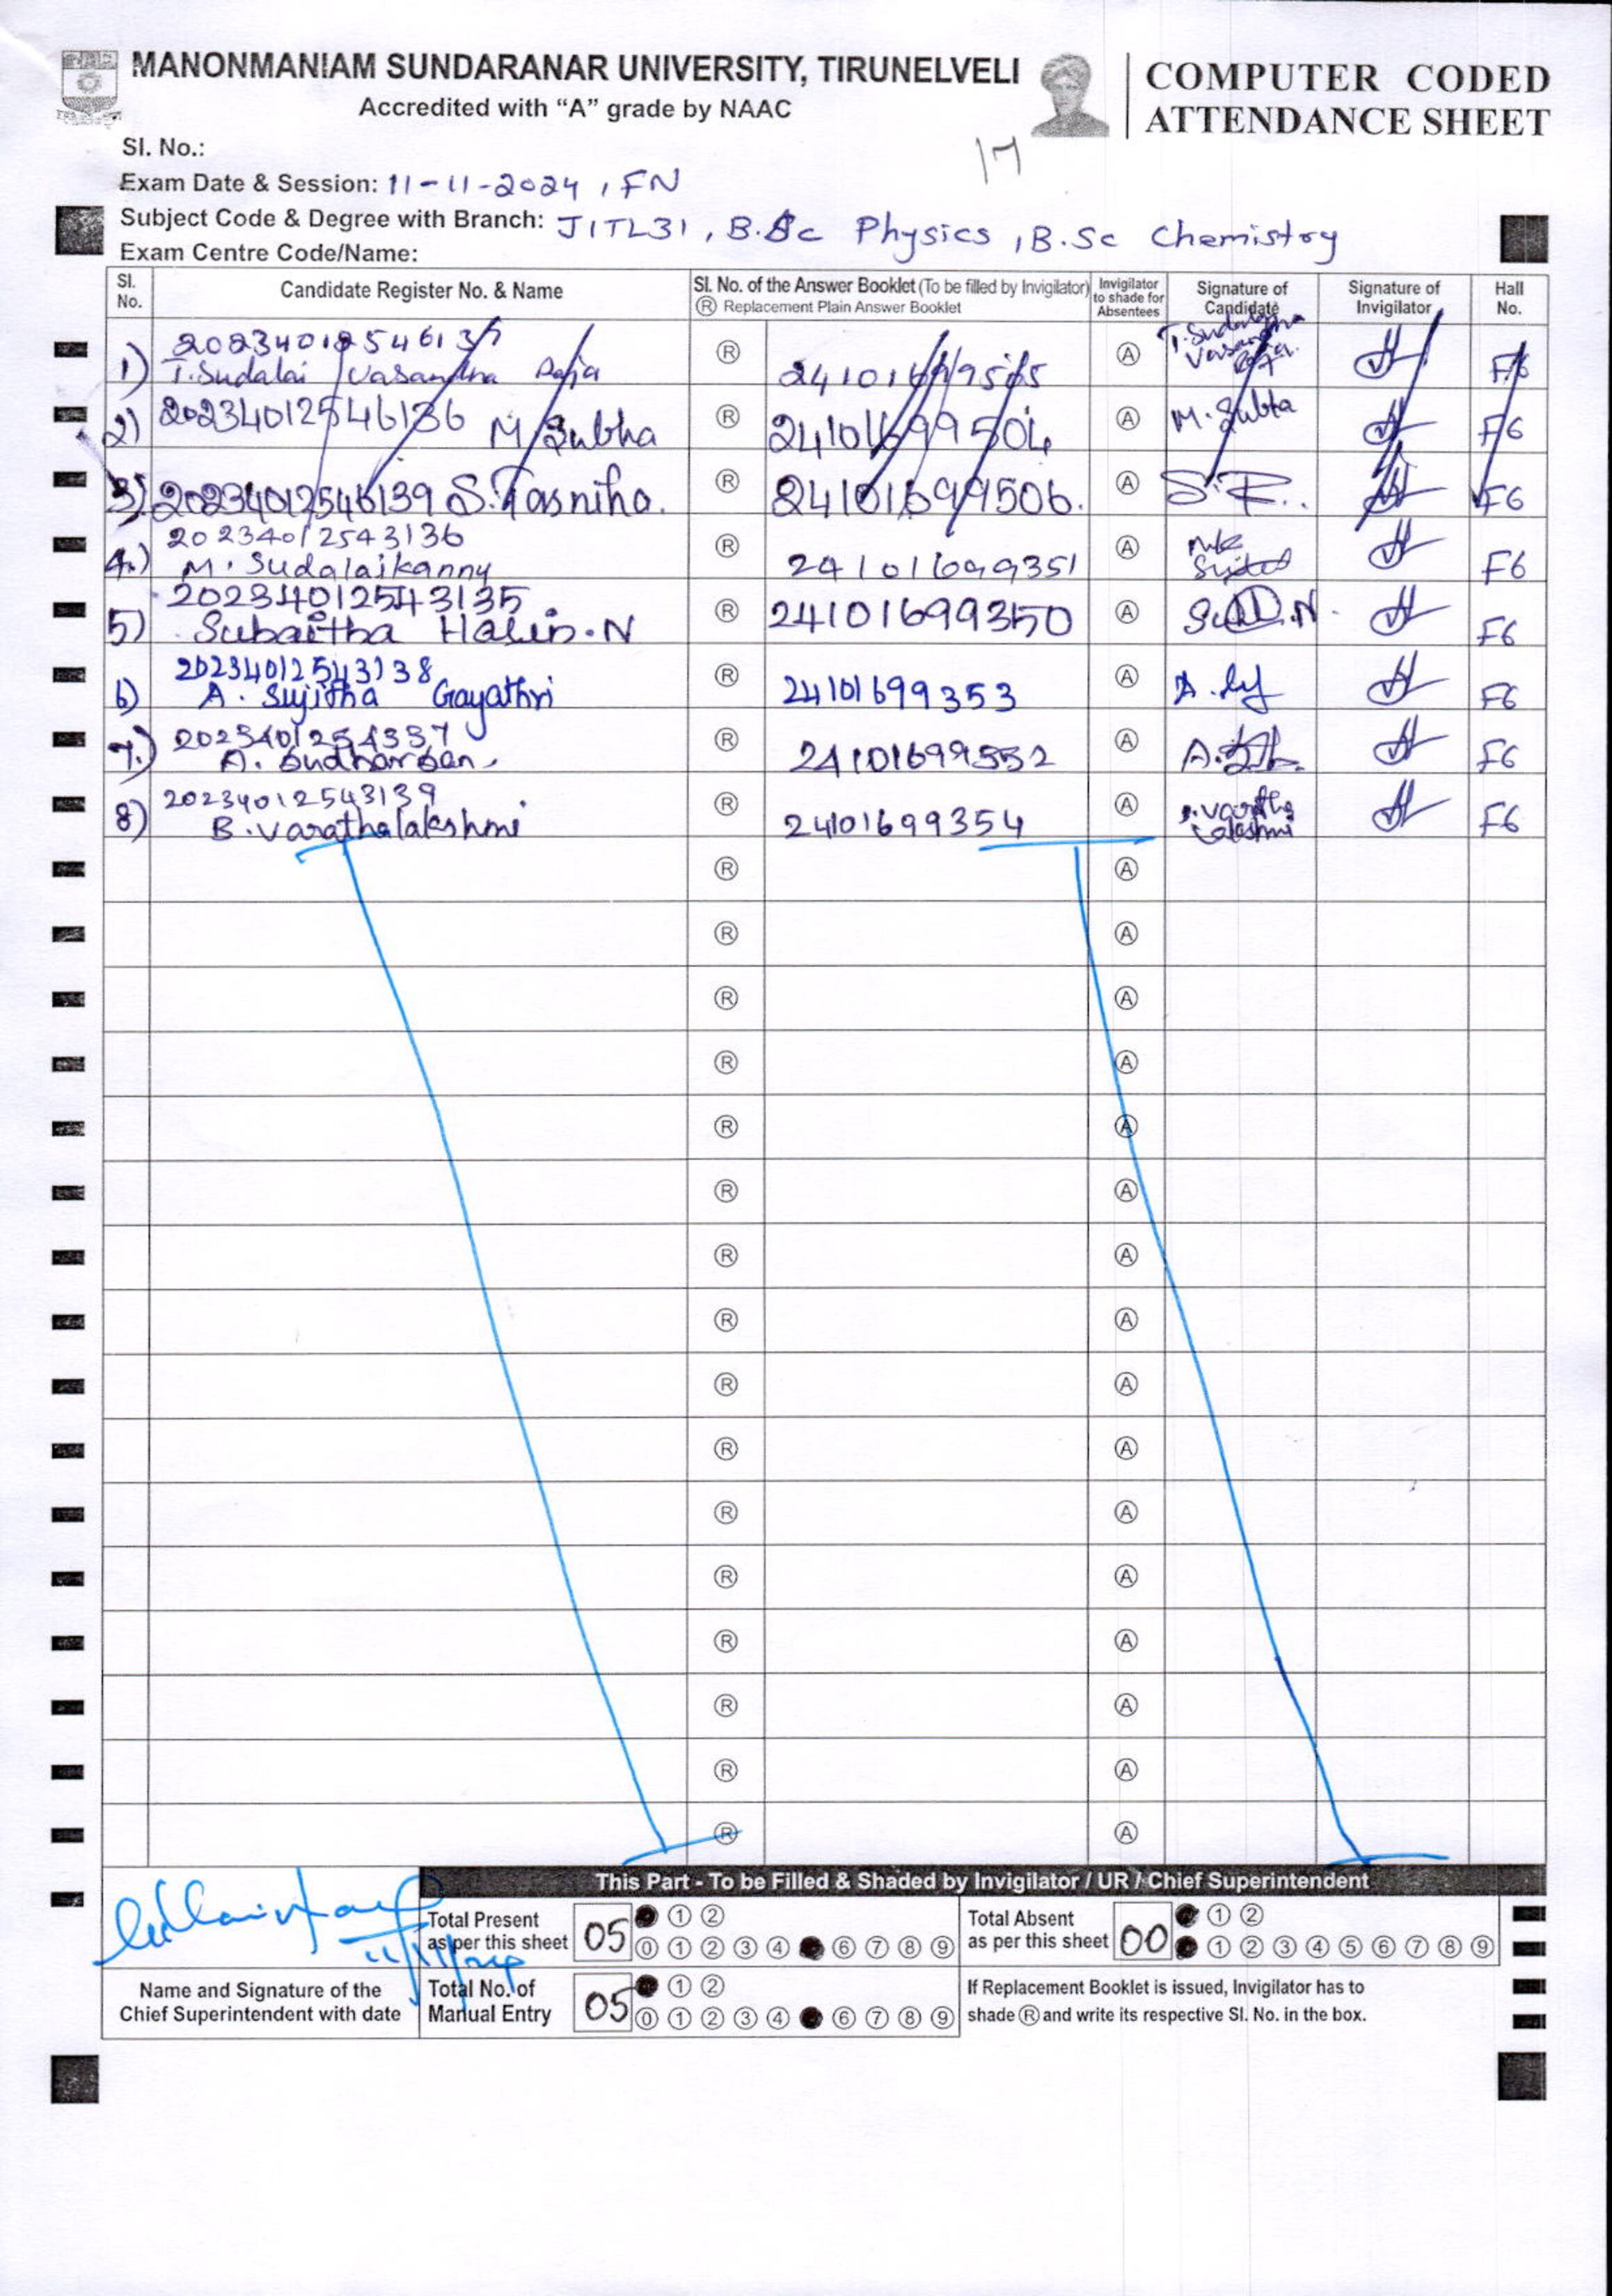 MANONMANIAM SUNDARANAR UNIVERSITY, TIRUNELVELI
Accredited with “A” grade by NAAC
COMPUTER CODED
ATTENDANCE SHEET
17
Sl. No.:
Exam Date & Session: 11-11-2024, FN
Subject Code & Degree with Branch: J1TL31, B.Sc Physics, B.Sc Chemistry
Exam Centre Code/Name:
Sl. No. Candidate Register No. & Name Sl. No. of the Answer Booklet (To be filled by Invigilator) Ⓡ Replacement Plain Answer Booklet Invigilator to shade for Absentees Signature of Candidate Signature of Invigilator Hall No.
1) T. Sudalai Vasantha Raja Ⓡ Ⓐ F6
2) 20234012546136 M. Subha Ⓡ 24101699504 Ⓐ M. Subha F6
3) 20234012546139 S. Tasniha. Ⓡ 24101699506. Ⓐ F6
20234012543136
4.) M. Sudalaikanny Ⓡ 24101699351 Ⓐ F6
20234012543135
5) Subaitha Ⓡ 24101699350 Ⓐ F6
20234012543138
6) A. Sujitha Gayathri Ⓡ 24101699353 Ⓐ F6
7.) A. Sudharsan Ⓡ 24101699352 Ⓐ F6
20234012543139
8) B. Varathalakshmi Ⓡ 24101699354 Ⓐ B. Varatha Lakshmi F6
Ⓡ Ⓐ
Ⓡ Ⓐ
Ⓡ Ⓐ
Ⓡ Ⓐ
Ⓡ Ⓐ
Ⓡ Ⓐ
Ⓡ Ⓐ
Ⓡ Ⓐ
Ⓡ Ⓐ
Ⓡ Ⓐ
Ⓡ Ⓐ
Ⓡ Ⓐ
Ⓡ Ⓐ
Ⓡ Ⓐ
Ⓡ Ⓐ
Ⓡ Ⓐ
This Part - To be Filled & Shaded by Invigilator / UR / Chief Superintendent
11/11/24
Total Present as per this sheet 05 ① ②
⓪ ① ② ③ ④ ⑥ ⑦ ⑧ ⑨
Total Absent as per this sheet 00 ① ②
① ② ③ ④ ⑤ ⑥ ⑦ ⑧ ⑨
Name and Signature of the Chief Superintendent with date
Total No. of Manual Entry 05 ① ②
⓪ ① ② ③ ④ ⑥ ⑦ ⑧ ⑨
If Replacement Booklet is issued, Invigilator has to
shade Ⓡ and write its respective Sl. No. in the box.